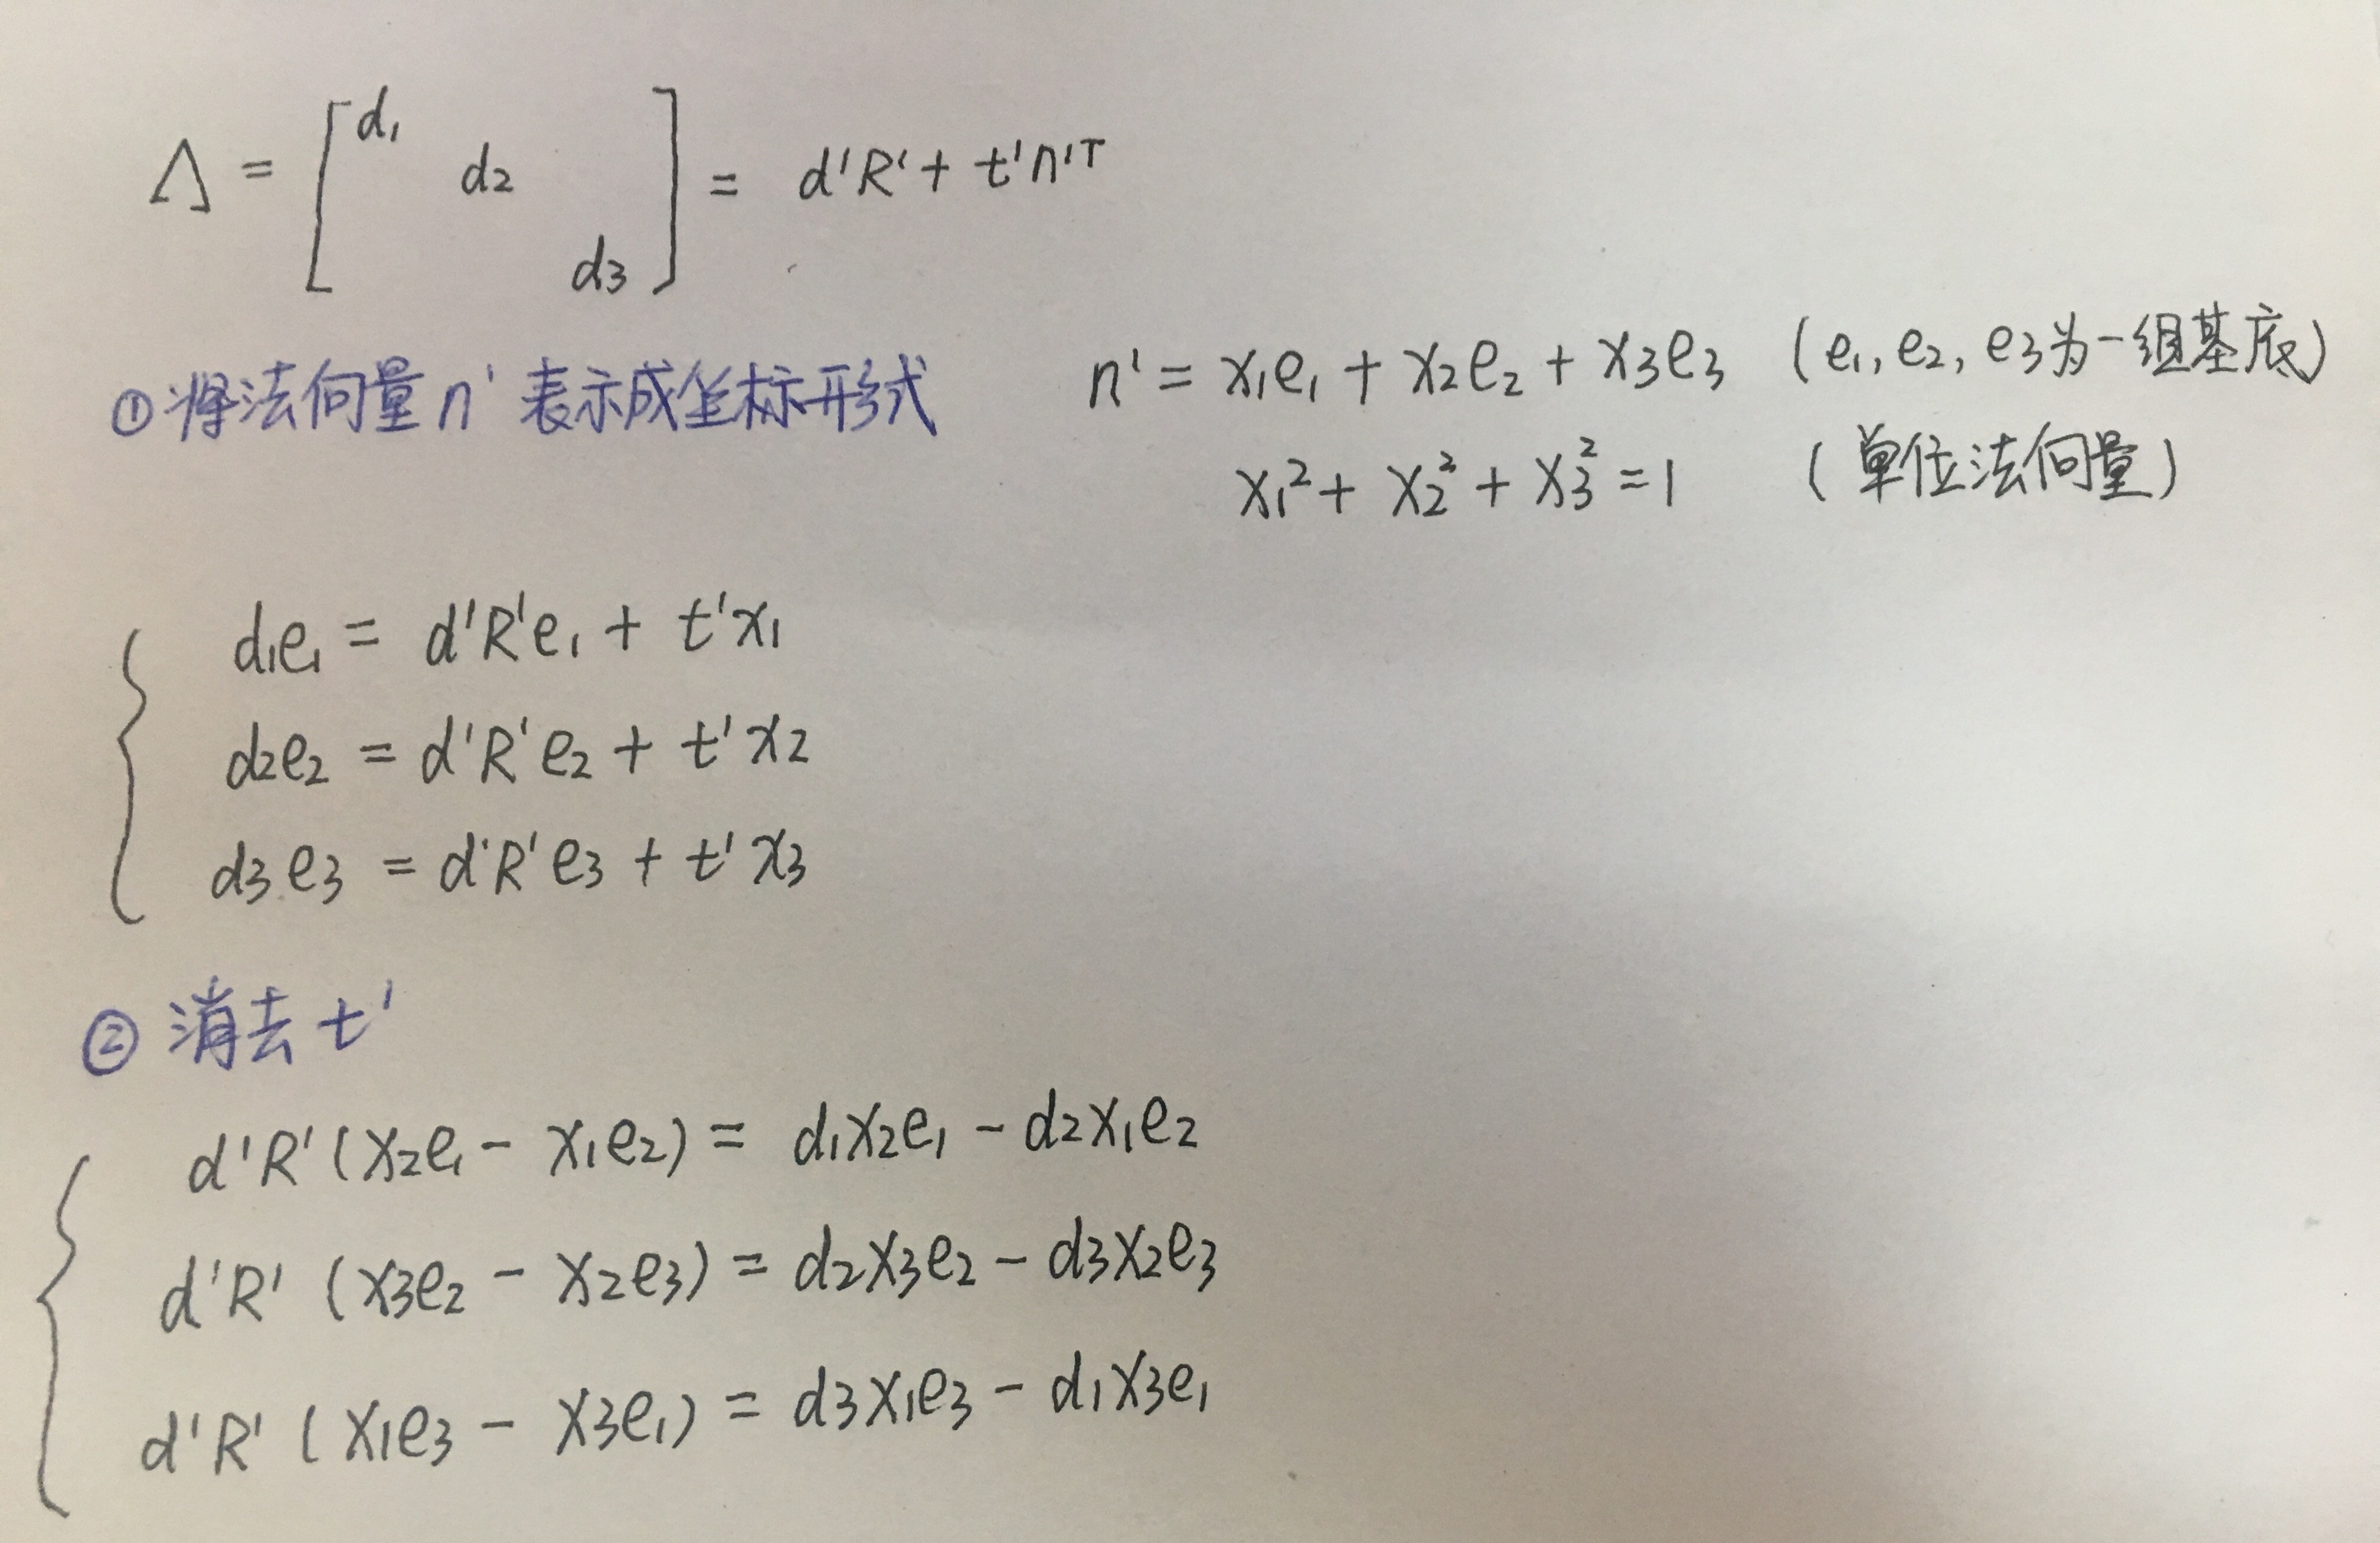 Λ = [ d₁ d₂ d₃ ] = d'R' + t'n'ᵀ
① 将法向量 n' 表示成坐标形式 n' = x₁e₁ + x₂e₂ + x₃e₃ (e₁, e₂, e₃为一组基底)
x₁² + x₂² + x₃² = 1 (单位法向量)
d₁e₁ = d'R'e₁ + t'x₁
d₂e₂ = d'R'e₂ + t'x₂
d₃e₃ = d'R'e₃ + t'x₃
② 消去 t'
d'R'(x₂e₁ - x₁e₂) = d₁x₂e₁ - d₂x₁e₂
d'R'(x₃e₂ - x₂e₃) = d₂x₃e₂ - d₃x₂e₃
d'R'(x₁e₃ - x₃e₁) = d₃x₁e₃ - d₁x₃e₁